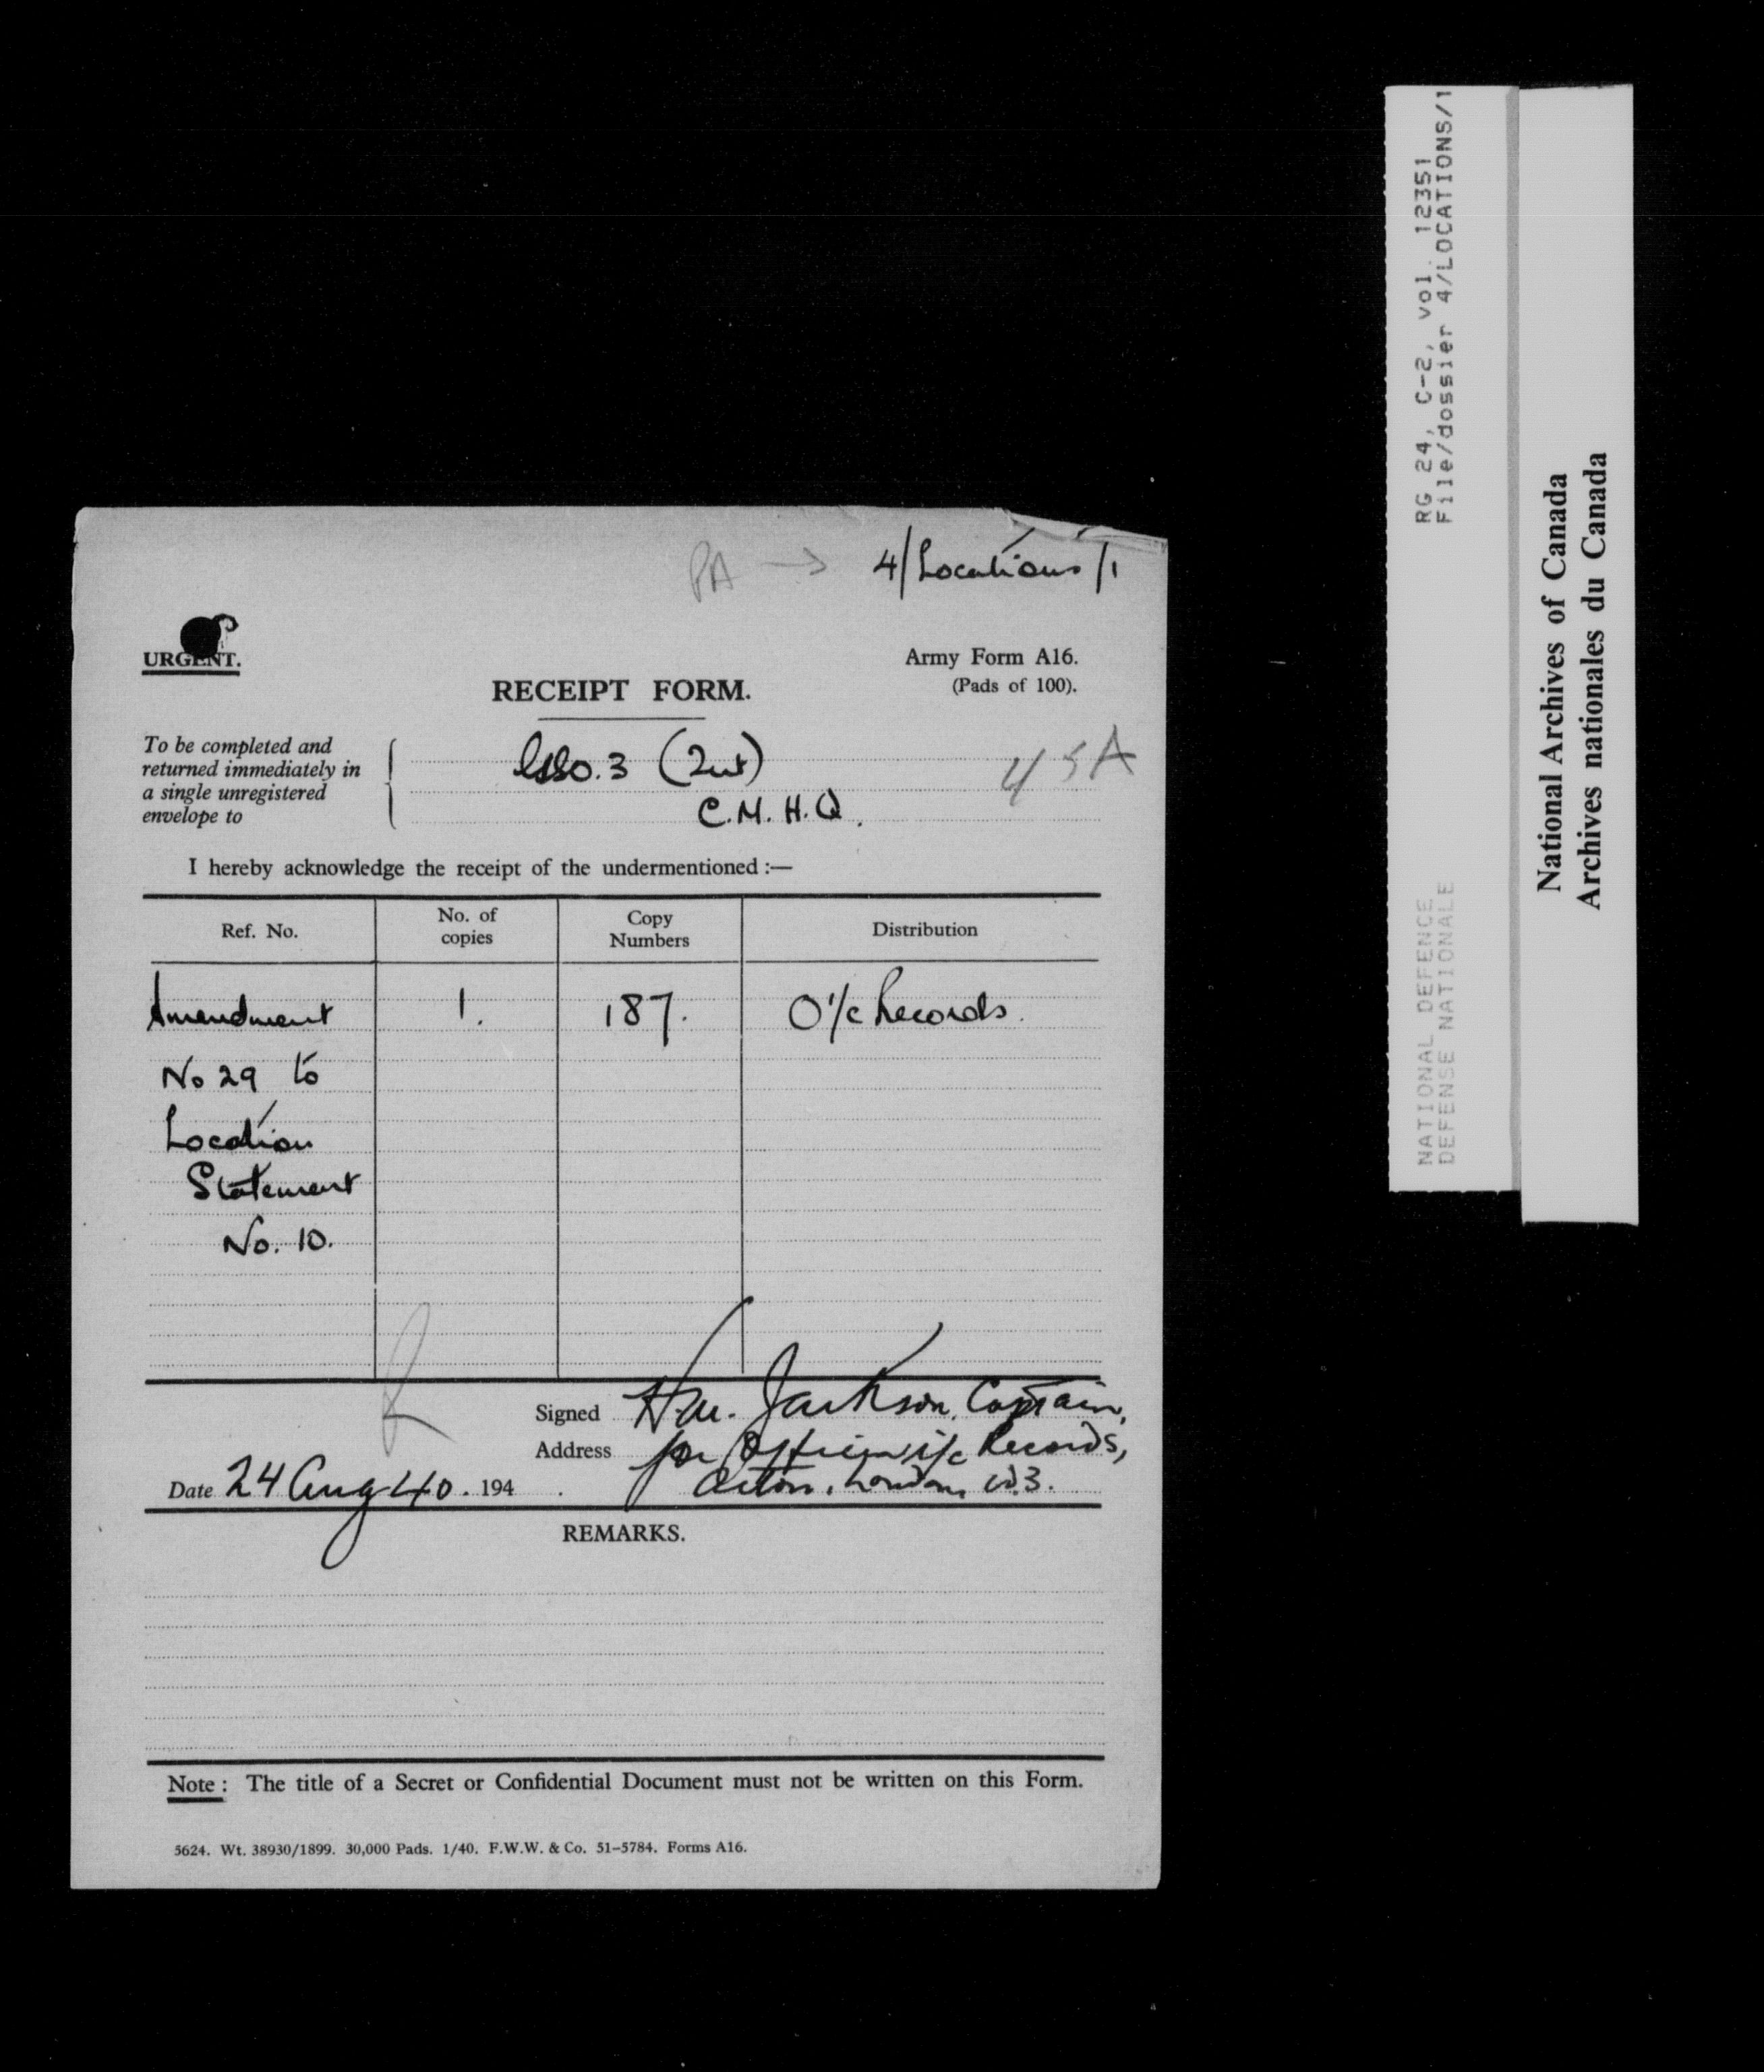 PA → 4/Locations/1
URGENT.
Army Form A16.
(Pads of 100).
RECEIPT FORM.
To be completed and
returned immediately in
a single unregistered
envelope to
GSO.3 (Int)
C.M.H.Q.
45A
I hereby acknowledge the receipt of the undermentioned :—
Ref. No. No. of copies Copy Numbers Distribution
Amendment 1. 187. O i/c Records.
No 29 to
Location
Statement
No. 10.
Signed H.M. Jackson, Captain,
Address for Officer i/c Records,
Acton, London, W.3.
Date 24 Aug 40. 194 .
REMARKS.
Note : The title of a Secret or Confidential Document must not be written on this Form.
5624. Wt. 38930/1899. 30,000 Pads. 1/40. F.W.W. & Co. 51–5784. Forms A16.
RG 24, C-2, vol. 12351
File/dossier 4/LOCATIONS/1
NATIONAL DEFENCE
DEFENSE NATIONALE
National Archives of Canada
Archives nationales du Canada